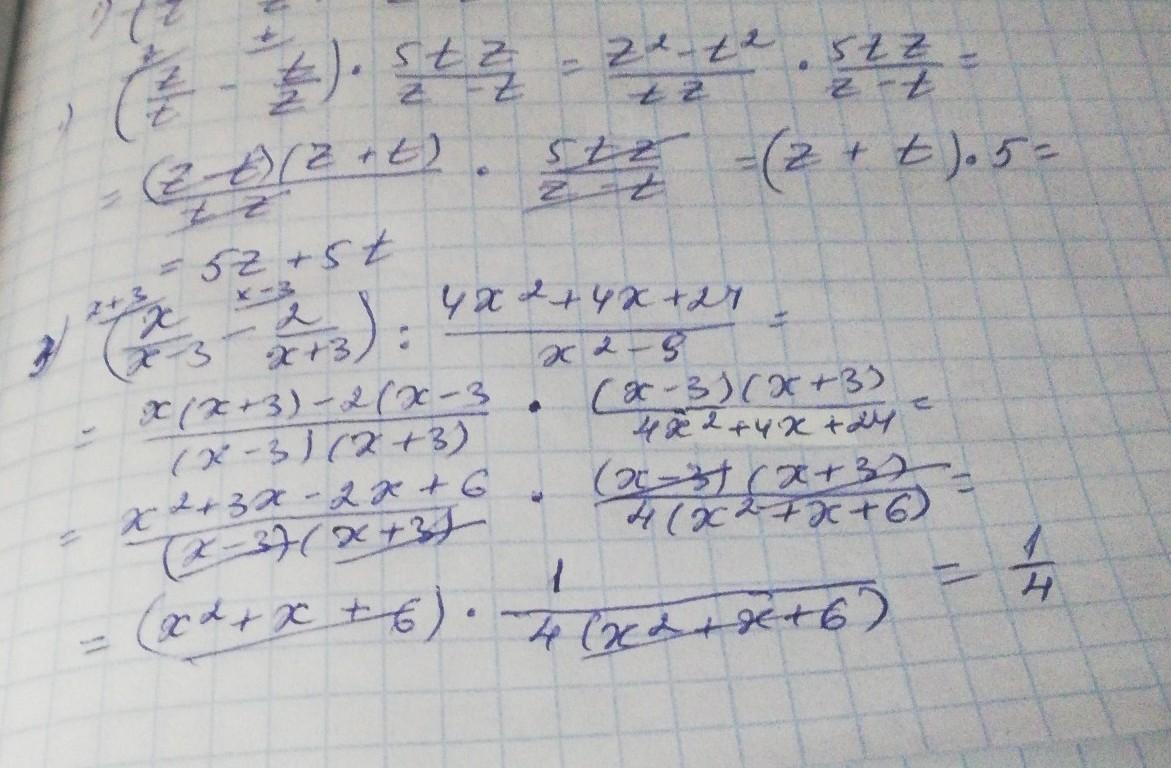 (z/t - t/z) · 5tz/(z - t) = (z² - t²)/(tz) · 5tz/(z - t) =
= (z - t)(z + t)/(tz) · 5tz/(z - t) = (z + t) · 5 =
= 5z + 5t
x+3 x-3
(x/(x - 3) - 2/(x + 3)) : (4x² + 4x + 24)/(x² - 9) =
= (x(x + 3) - 2(x - 3)/((x - 3)(x + 3)) · (x - 3)(x + 3)/(4x² + 4x + 24) =
= (x² + 3x - 2x + 6)/((x - 3)(x + 3)) · (x - 3)(x + 3)/(4(x² + x + 6)) =
= (x² + x + 6) · 1/(4(x² + x + 6)) = 1/4